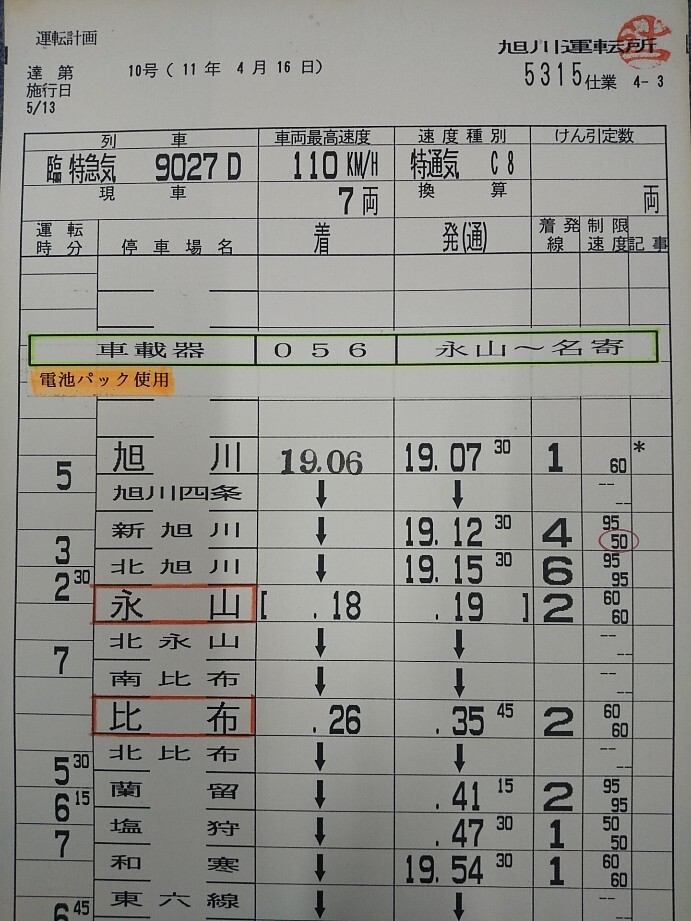 運転計画
旭川運転所
達第 10号 ( 11 年 4 月 16 日)
5315仕業 4-3
施行日
5/13
列車 車両最高速度 速度種別 けん引定数
臨 特急気 9027 D 110 KM/H 特通気 C 8
現車 7 両 換算 両
運転時分 停車場名 着 発(通) 着発線 制限速度 記事
車載器 056 永山～名寄
電池パック使用
旭川 19.06 19.07 30 1 60 *
5
旭川四条 ↓ ↓ -- --
新旭川 ↓ 19.12 30 4 95 50
3
北旭川 ↓ 19.15 30 6 95 95
2 30
永山 [ .18 .19 ] 2 60 60
北永山 ↓ ↓ -- --
7
南比布 ↓ ↓ -- --
比布 .26 .35 45 2 60 60
北比布 ↓ ↓ -- --
5 30
蘭留 ↓ .41 15 2 95 95
6 15
塩狩 ↓ .47 30 1 50 50
7
和寒 ↓ 19.54 30 1 60 60
東六線 ↓ ↓ -- --
6 45